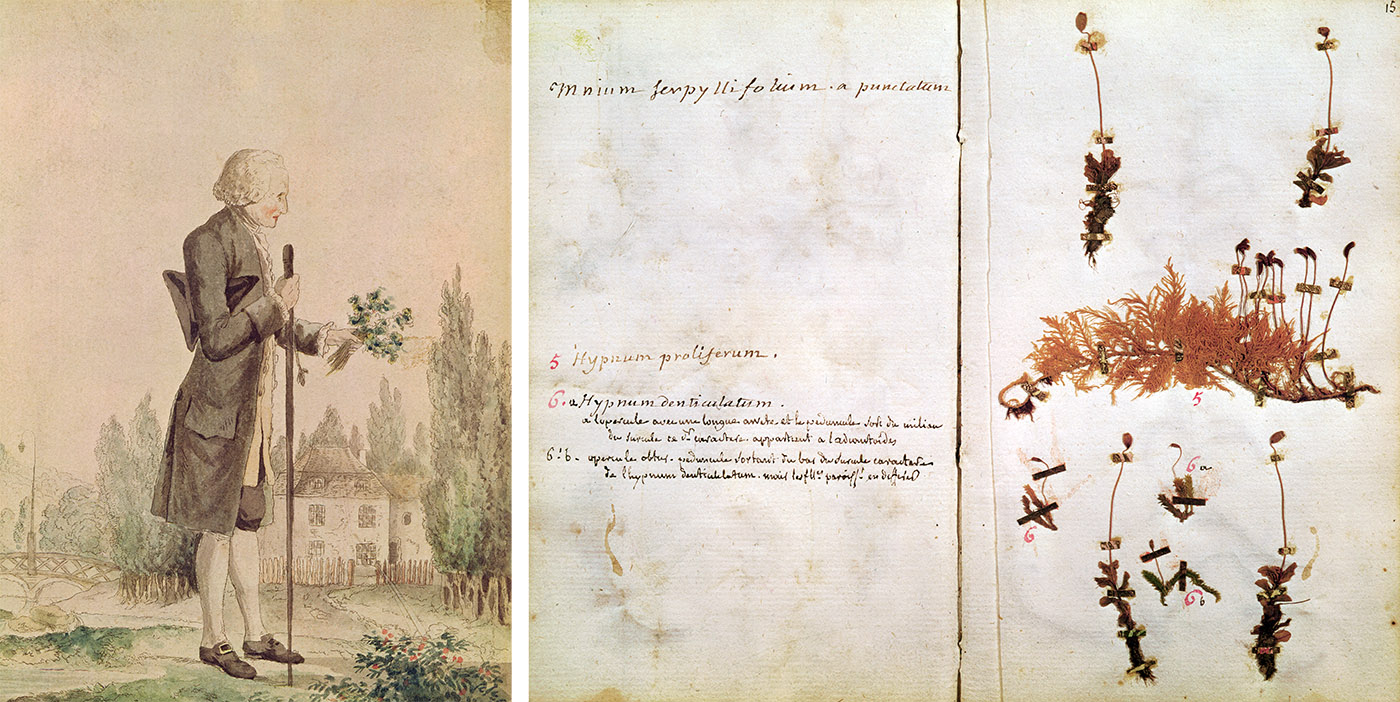 15
Mnium serpyllifolium. a punctatum
5 Hypnum proliferum.
6. a Hypnum denticulatum.
a l'opercule avec une longue arrete et le peduncule sort du milieu
du surcule ce dr. caractere appartient a l'adiantoides
6. b. opercule obtus. peduncule sortant du bas du surcule caracteres
de l'hypnum denticulatum. mais les en
5
6 a
6
6 b